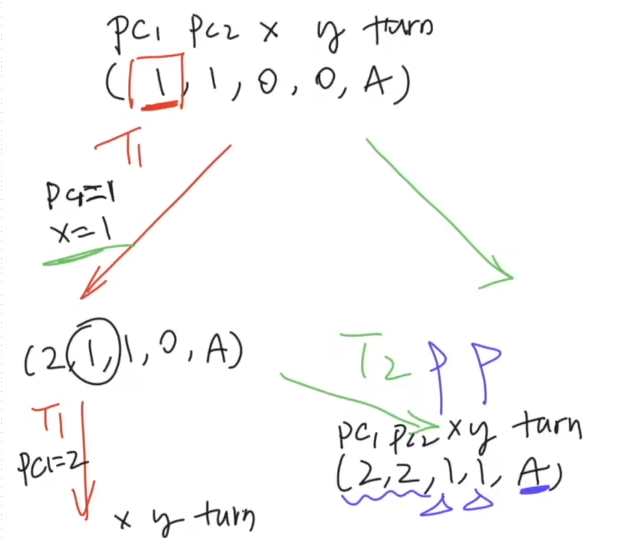 PC1 PC2 x y turn
(1, 1, 0, 0, A)
T1
PC1=1
x=1
(2, 1, 1, 0, A)
T1
PC1=2
x y turn
T2 P P
PC1 PC2 x y turn
(2, 2, 1, 1, A)